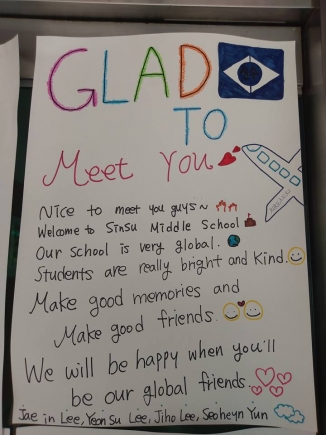 GLAD
TO
Meet You
Nice to meet you guys~
Welcome to Sinsu Middle School
Our school is very global.
Students are really bright and kind.
Make good memories and
Make good friends.
We will be happy when you'll
be our global friends.
Jae in Lee, Yeon Su Lee, Jiho Lee, Seoheyn Yun